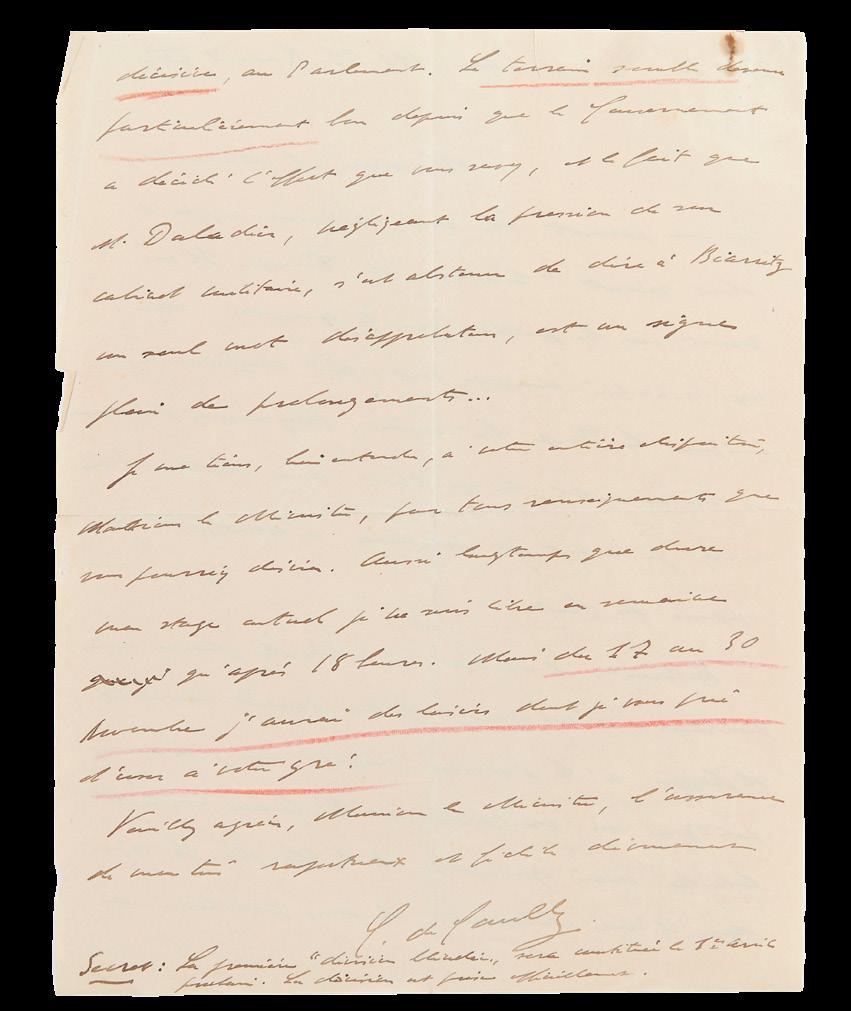 décisive, au Parlement. Le terrain semble devenu
particulièrement bon depuis que le Gouvernement
a décidé l'effort que vous savez, et le fait que
M. Daladier, négligeant la pression de son
cabinet militaire, s'est abstenu de dire à Biarritz
un seul mot désapprobateur, est un signe
plein de prolongements...
Je me tiens, bien entendu, à votre entière disposition,
Monsieur le Ministre, pour tous renseignements que
vous pourriez désirer. Aussi longtemps que dure
mon stage actuel je ne suis libre en semaine
qu'après 18 heures. Mais du 17 au 30
Novembre j'aurai des loisirs dont je vous prie
d'user à votre gré.
Veuillez agréer, Monsieur le Ministre, l'assurance
de mon très respectueux et fidèle dévouement
C. de Gaulle
Secret : La première "division blindée" sera constituée le 1er avril
prochain. La décision est prise officiellement.